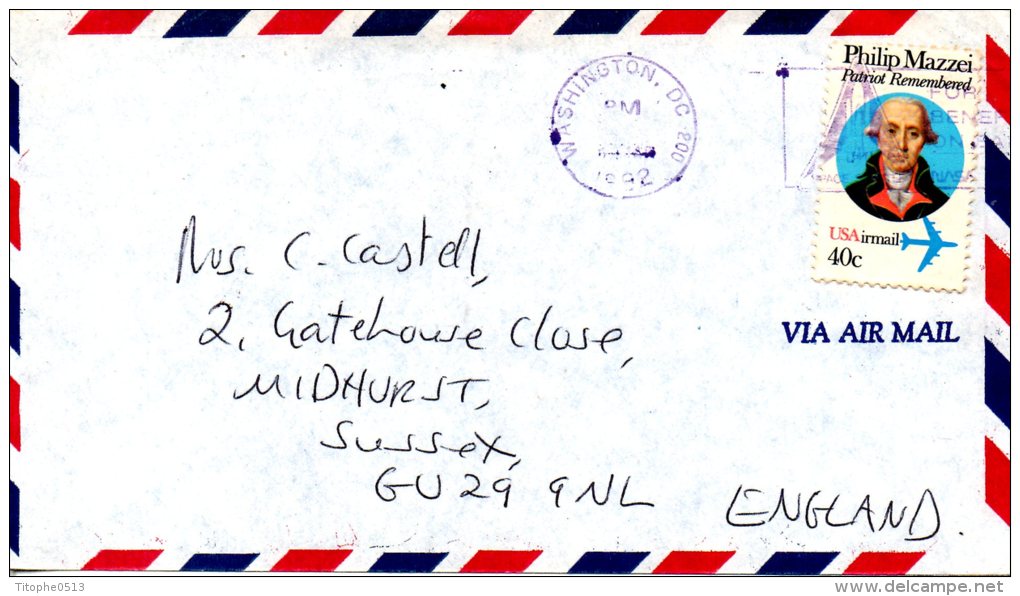 WASHINGTON, DC 200
PM
1992
Philip Mazzei
Patriot Remembered
FOR
USAirmail
40c
VIA AIR MAIL
Mrs. C. Castell,
2, Gatehouse Close,
MIDHURST,
Sussex,
GU29 9NL
ENGLAND.
Titophe0513
www.delcampe.net